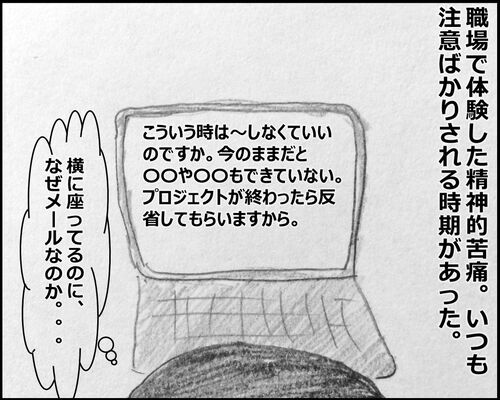 職場で体験した精神的苦痛。いつも
注意ばかりされる時期があった。
こういう時は～しなくていい
のですか。今のままだと
〇〇や〇〇もできていない。
プロジェクトが終わったら反
省してもらいますから。
横に座ってるのに、
なぜメールなのか。。。